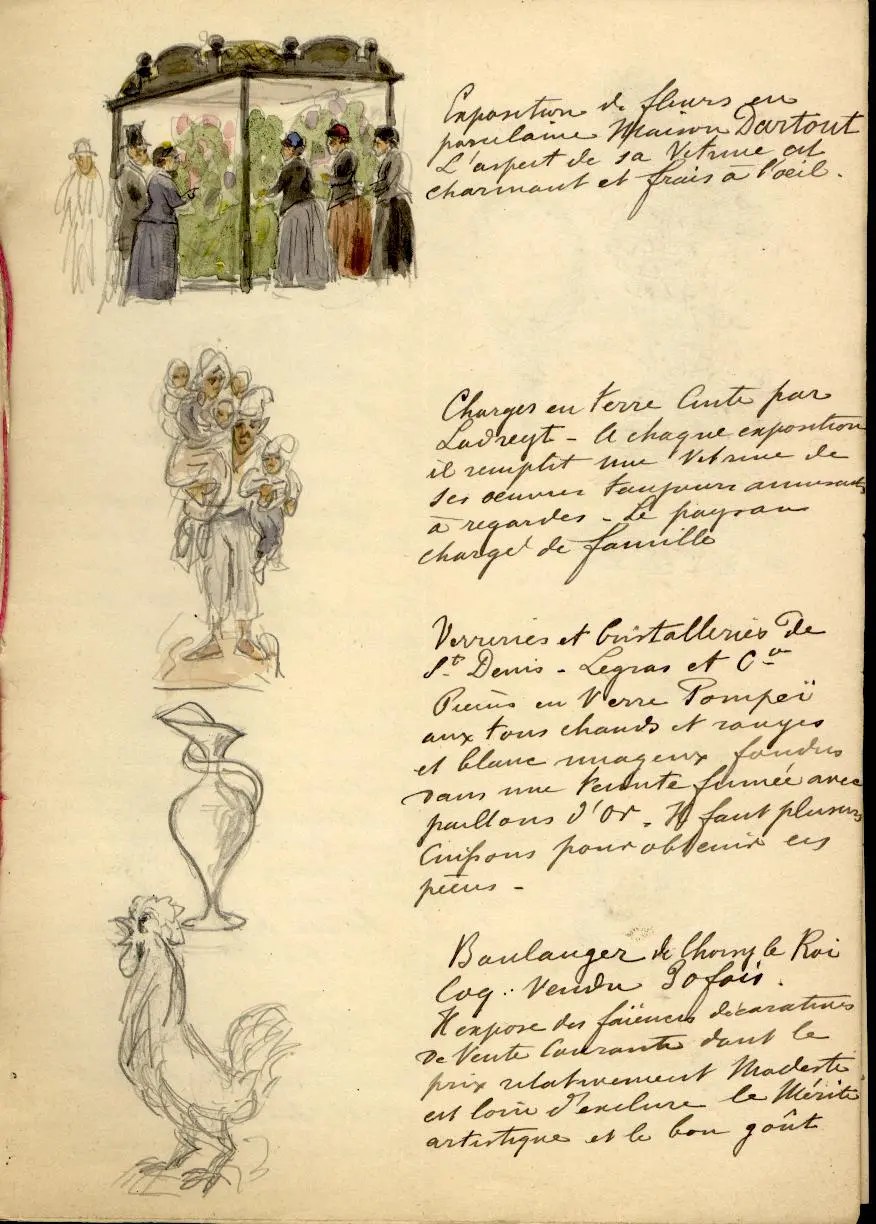 Exposition de fleurs en
porcelaine Maison Dartout
L'aspect de sa Vitrine est
charmant et frais à l'oeil.
Charges en terre Cuite par
Ladreyt - A chaque exposition
il remplit une Vitrine de
ses oeuvres toujours amusantes
à regarder - Le paysan
chargé de famille
Verreries et Cristalleries de
St Denis - Legras et Cie
Pièces en Verre Pompeï
aux tons chauds et rouges
et blanc nuageux fondus
dans une teinte fumée avec
paillons d'Or. Il faut plusieurs
Cuissons pour obtenir ces
pièces -
Boulanger de Choisy le Roi
Coq: Vendu 30 fois.
Il expose des faïences décoratives
de Vente Courante dont le
prix relativement Modeste
est loin d'exclure le Mérite
artistique et le bon goût